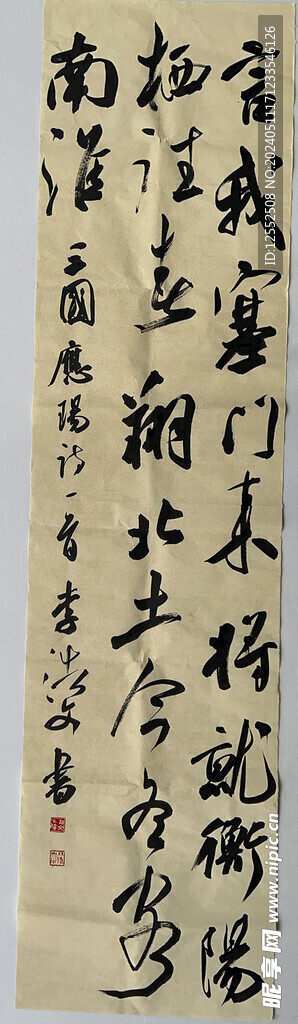 言我塞門来將就衡陽
栖往春翔北土今冬客
南淮
三國應瑒诗一首 李 文書
ID:12552508 NO:20240511171233546126
昵享网 www.nipic.cn